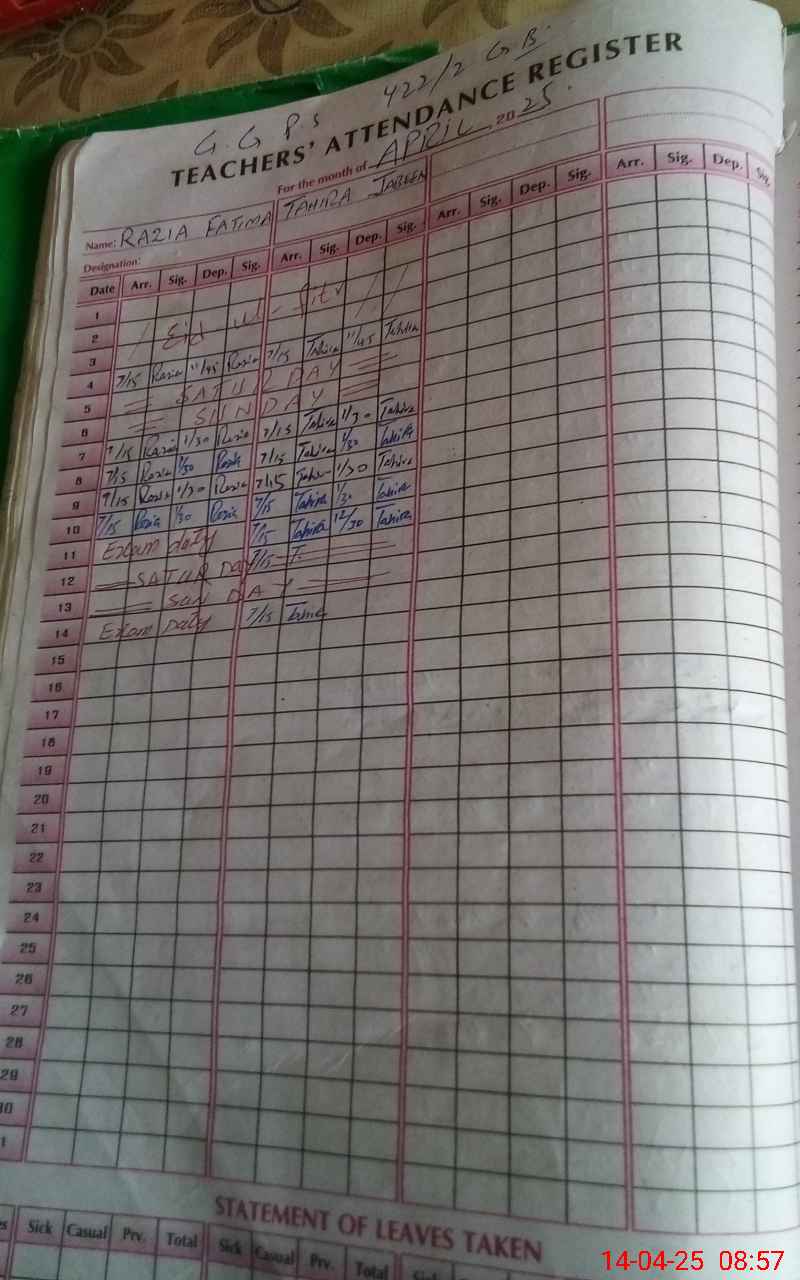 G.G P.S 422/2 GB.
TEACHERS' ATTENDANCE REGISTER
For the month of APRIL 2025.
Name: RAZIA FATIMA TAHIRA JABEEN
Designation:
Date Arr. Sig. Dep. Sig. Arr. Sig. Dep. Sig. Arr. Sig. Dep. Sig. Arr. Sig. Dep. Sig.
1
2 Eid ul-fitr
3
4 7/15 Razia 11/45 Razia 7/15 Tahira 11/45 Tahira
5 SATURDAY
6 SUNDAY
7 7/15 Razia 1/30 Razia 7/15 Tahira 1/30 Tahira
8 7/15 Razia 1/30 Razia 7/15 Tahira 1/30 Tahira
9 7/15 Razia 1/30 Razia 7/15 Tahira 1/30 Tahira
10 7/15 Razia 1/30 Razia 7/15 Tahira 1/30 Tahira
11 Exam duty 7/15 Tahira 12/30 Tahira
12 SATURDAY 7/15 T
13 SUNDAY
14 Exam Duty 7/15 Tahira
15
16
17
18
19
20
21
22
23
24
25
26
27
28
29
30
1
STATEMENT OF LEAVES TAKEN
Sick Casual Prv. Total Sick Casual Prv. Total
14-04-25 08:57